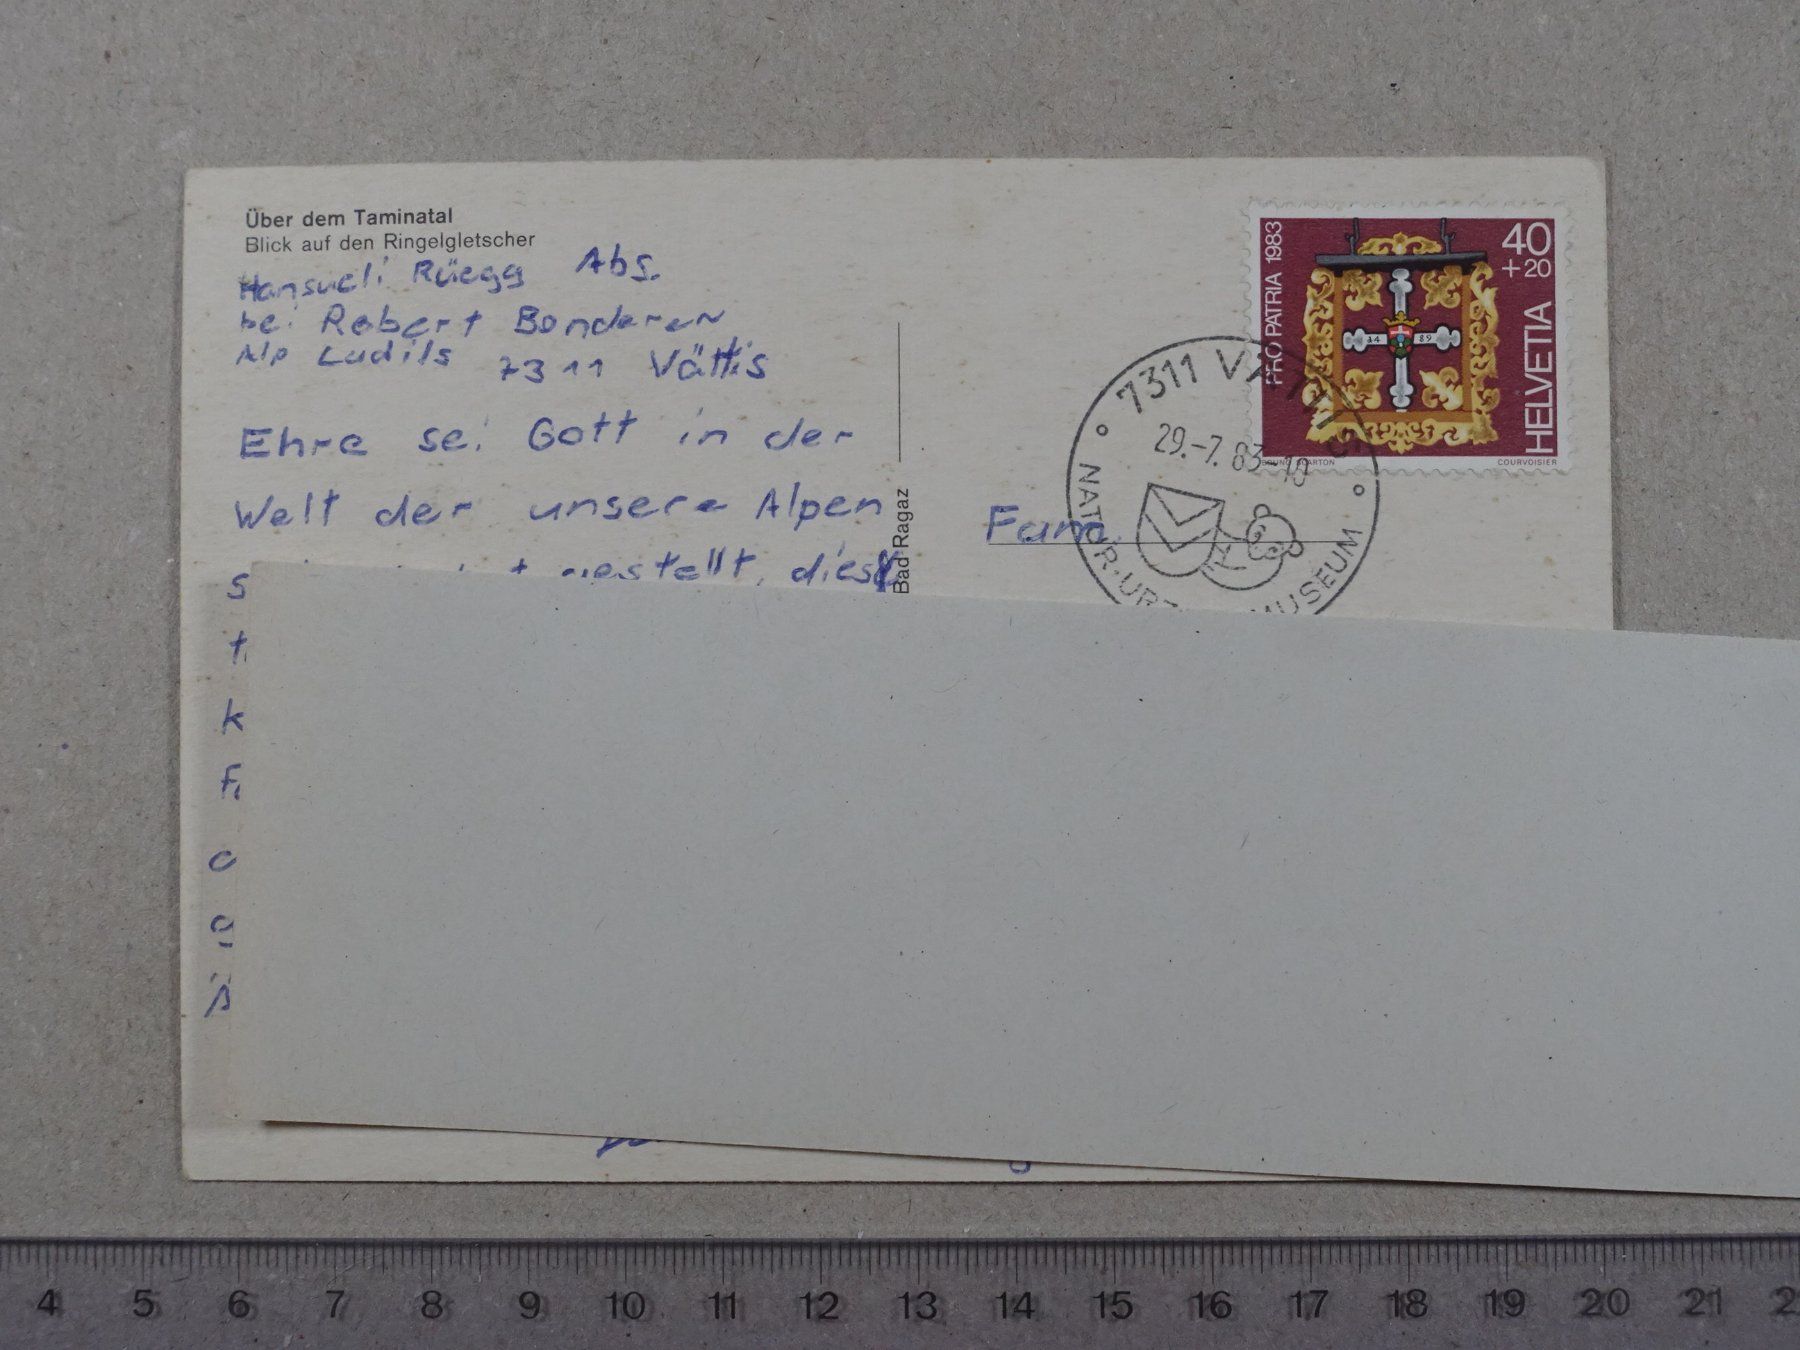 Über dem Taminatal
Blick auf den Ringelgletscher
Hansueli Rüegg Abs.
bei Robert Bonderer
Alp Ladils 7311 Vättis
Ehre sei Gott in der
Welt der unsere Alpen
gestellt, diese
Bad Ragaz
PRO PATRIA 1983
40
+20
HELVETIA
14 89
BRUNO SCARTON
COURVOISIER
7311 VÄTTIS
29.-7.83-18
NATUR-URZEIT-MUSEUM
Fam.
4 5 6 7 8 9 10 11 12 13 14 15 16 17 18 19 20 21